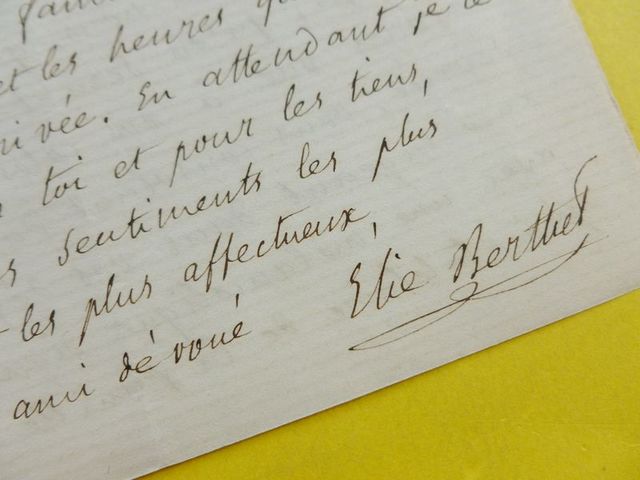 et les heures
ivée. En attendant je te
toi et pour les tiens,
sentiments les plus
les plus affectueux,
ami dévoué Elie Berthet